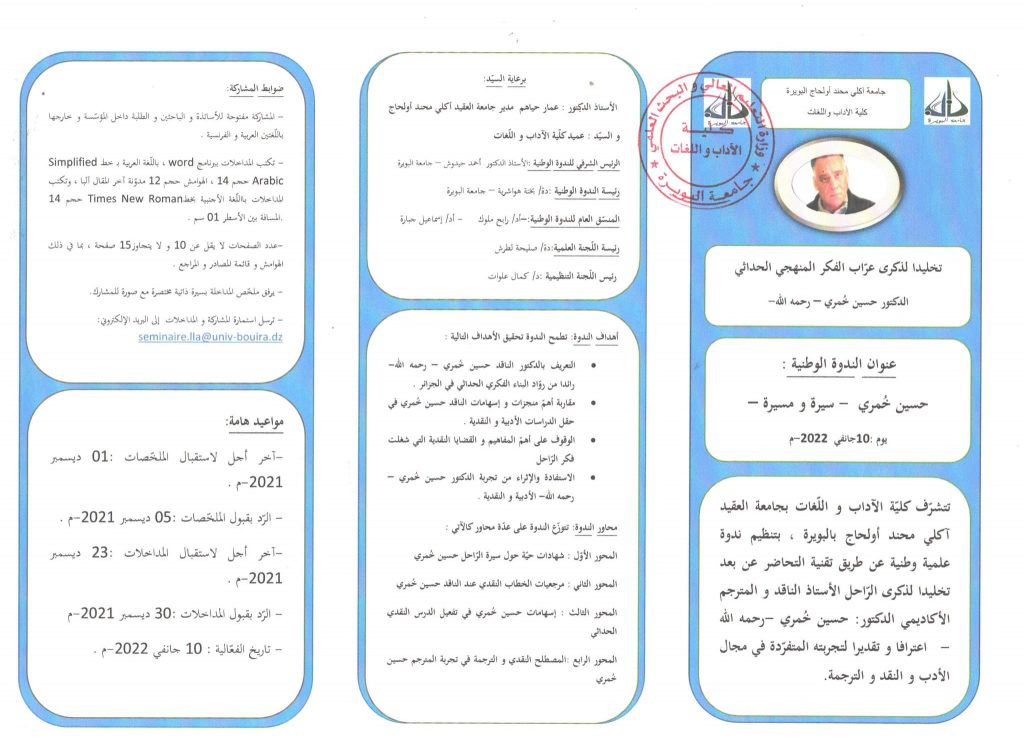 جامعة اكلي محند أولحاج البويرة
كلية الآداب واللغات
جامعة البويرة
جامعة البويرة
وزارة التعليم العالي و البحث العلمي
كلية
الأداب و اللغات
جامعة البويرة
تخليدا لذكرى عرّاب الفكر المنهجي الحداثي
الدكتور حسين خُمري – رحمه الله-
عنوان الندوة الوطنية :
حسين خُمري – سيرة و مسيرة –
يوم :10جانفي 2022-م
تتشرّف كليّة الآداب و اللّغات بجامعة العقيد
آكلي محند أولحاج بالبويرة ، بتنظيم ندوة
علمية وطنية عن طريق تقنية التحاضر عن بعد
تخليدا لذكرى الرّاحل الأستاذ الناقد و المترجم
الأكاديمي الدكتور: حسين خُمري –رحمه الله
– اعترافا و تقديرا لتجربته المتفرّدة في مجال
الأدب و النقد و الترجمة.
برعاية السيّد:
الأستاذ الدكتور : عمار حياهم مدير جامعة العقيد آكلي محند أولحاج
و السيّد : عميد كليّة الآداب و اللّغات
الرئيس الشرفي للندوة الوطنية :الأستاذ الدكتور أحمد حيدوش – جامعة البويرة
رئيسة الندوة الوطنية :دة/ بختة هواشرية – جامعة البويرة
المنسّق العام للندوة الوطنية:–أد/ رابح ملوك – أد/ إسماعيل جبارة
رئيسة اللّجنة العلمية:دة/ صليحة لطرش
رئيس اللّجنة التنظيمية :د/ كمال علوات
أهداف الندوة: تطمح الندوة تحقيق الأهداف التالية :
• التعريف بالدكتور الناقد حسين خُمري – رحمه الله-
رائدا من روّاد البناء الفكري الحداثي في الجزائر .
• مقاربة أهمّ منجزات و إسهامات الناقد حسين خُمري في
حقل الدراسات الأدبية و النقدية .
• الوقوف على أهمّ المفاهيم و القضايا النقدية التي شغلت
فكر الرّاحل
• الاستفادة والإثراء من تجربة الدكتور حسين خُمري –
رحمه الله– الأدبية و النقدية .
محاور الندوة: تتوزّع الندوة على عدّة محاور كالآتي :
المحور الأوّل : شهادات حيّة حول سيرة الرّاحل حسين خُمري
المحور الثاني : مرجعيات الخطاب النقدي عند الناقد حسين خُمري
المحور الثالث : إسهامات حسين خُمري في تفعيل الدرس النقدي
الحداثي
المحور الرابع :المصطلح النقدي و الترجمة في تجربة المترجم حسين
خُمري
ضوابط المشاركة:
– المشاركة مفتوحة للأساتذة و الباحثين و الطلبة داخل المؤسّسة و خارجها
باللّغتين العربية و الفرنسية .
– تكتب المداخلات ببرنامج word ، باللّغة العربية بـ خط Simplified
Arabic حجم 14 ، الهوامش حجم 12 مدوّنة آخر المقال آليا ، وتكتب
المداخلات باللّغة الأجنبية بخطTimes New Roman حجم 14
.المسافة بين الأسطر 01 سم .
–عدد الصفحات لا يقل عن 10 و لا يتجاوز15 صفحة ، بما في ذلك
الهوامش و قائمة المصادر و المراجع .
– يرفق ملخّص المداخلة بسيرة ذاتية مختصرة مع صورة للمشارك.
– ترسل استمارة المشاركة و المداخلات إلى البريد الإلكتروني:
seminaire.lla@univ-bouira.dz
مواعيد هامة:
–آخر أجل لاستقبال الملخّصات :01 ديسمبر
2021–م .
– الرّد بقبول الملخّصات :05 ديسمبر 2021–م .
–آخر أجل لاستقبال المداخلات :23 ديسمبر
2021–م .
– الرّد بقبول المداخلات :30 ديسمبر 2021–م
– تاريخ الفعّالية : 10 جانفي 2022–م .